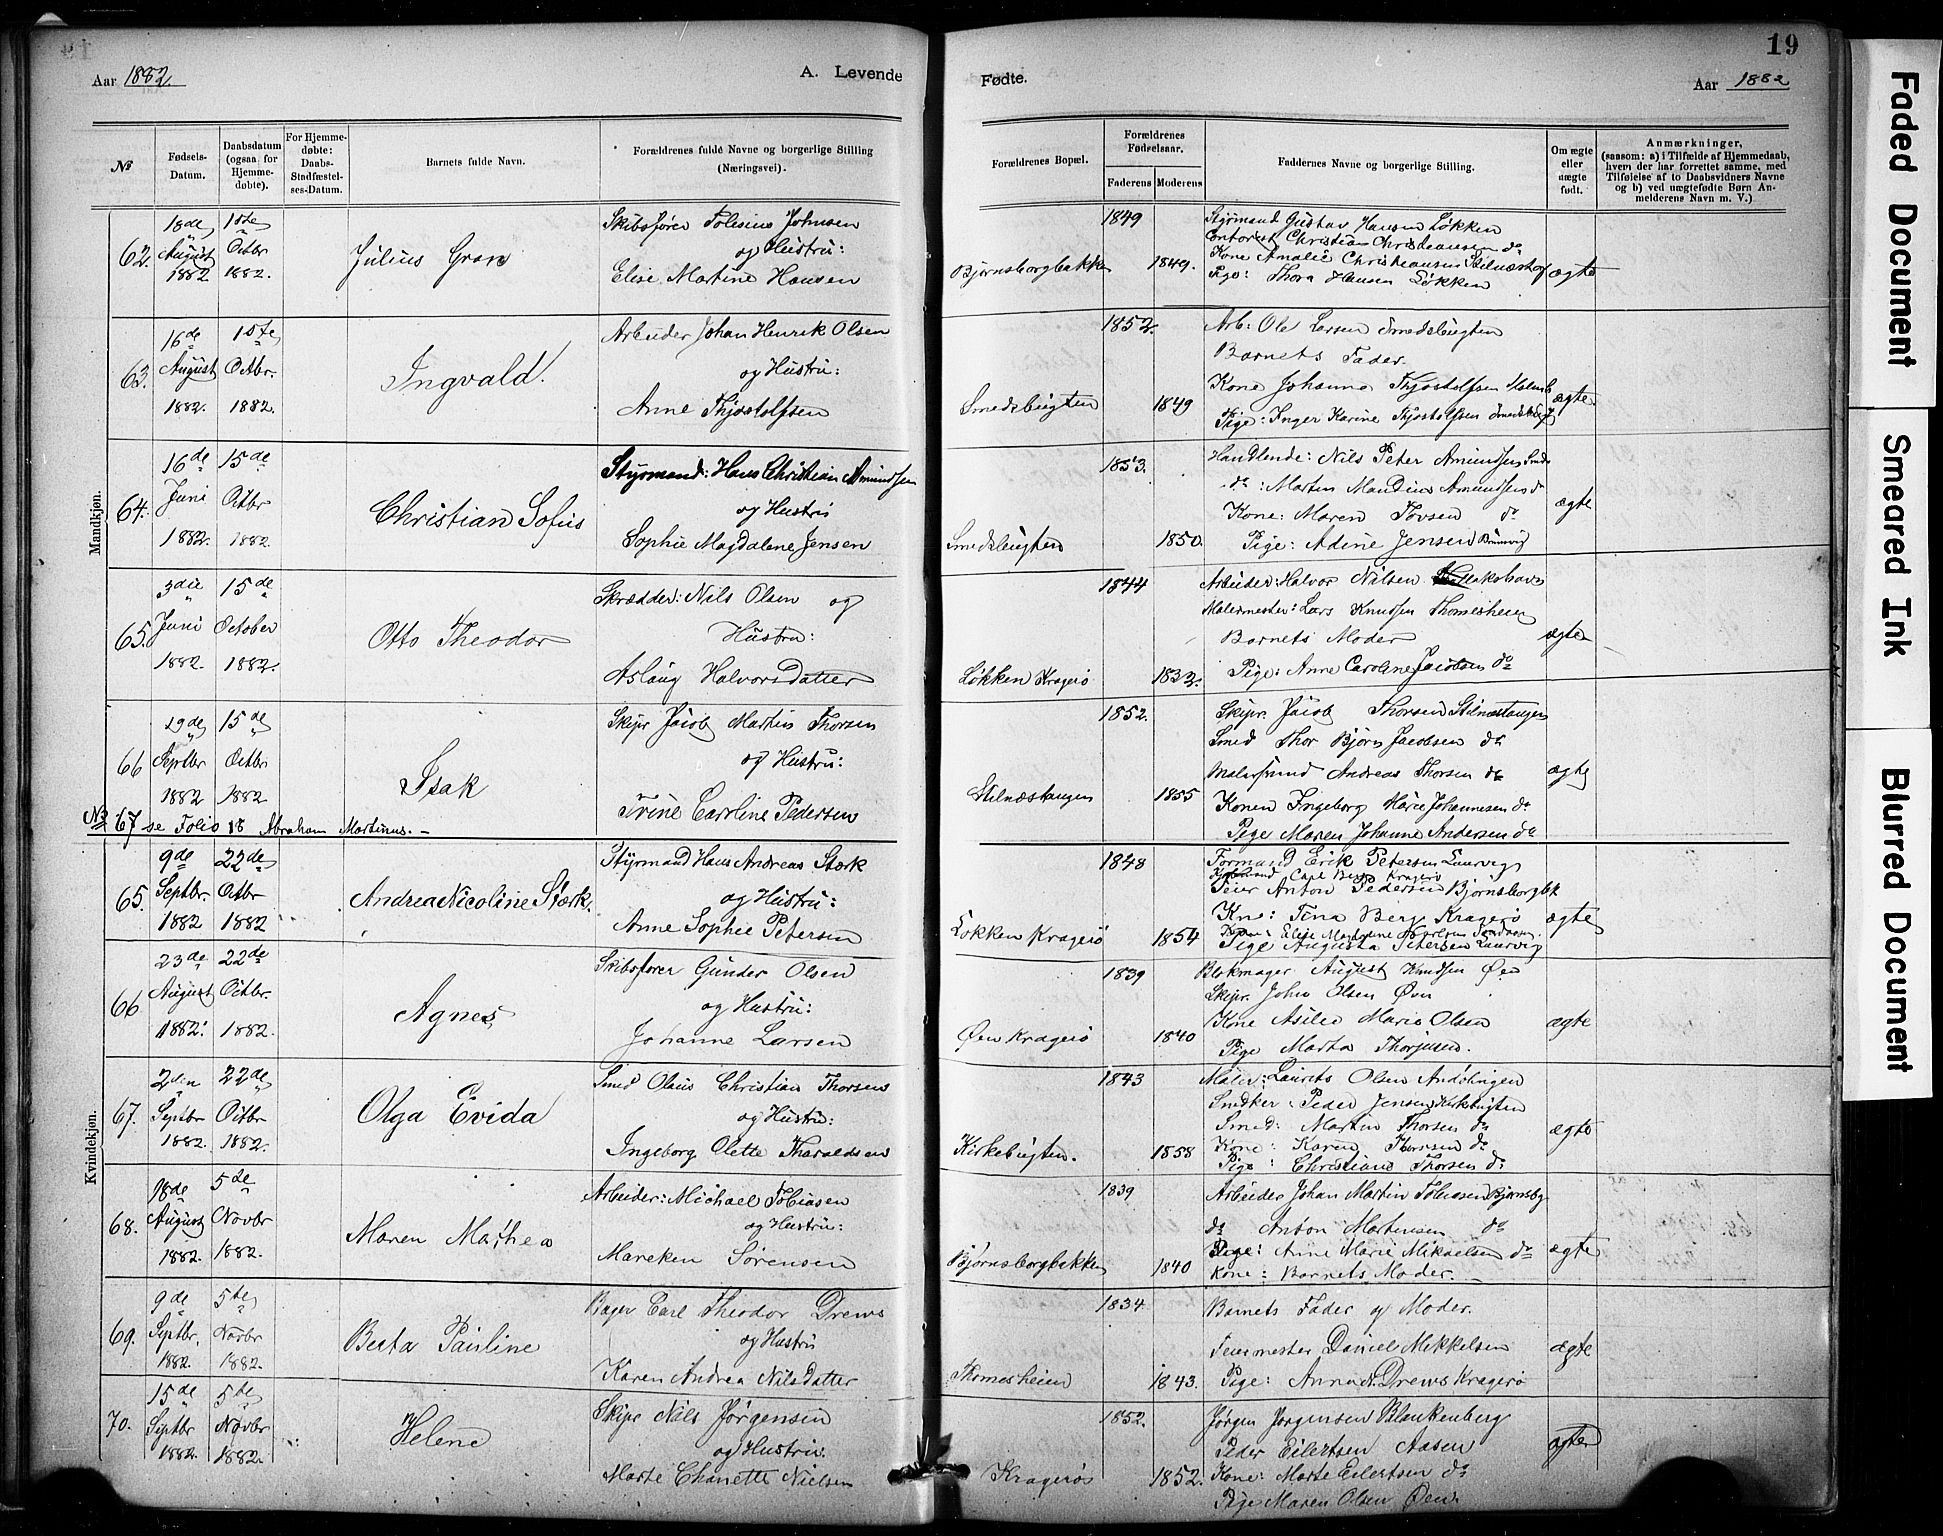 19
Aar 1882.
A. Levende
Fødte.
Aar 1882
№
Fødsels-Datum.
Daabsdatum (ogsaa for Hjemmedøbte).
For Hjemmedøbte: Daabs-Stadfæstelses-Datum.
Barnets fulde Navn.
Forældrenes fulde Navne og borgerlige Stilling (Næringsvei).
Forældrenes Bopæl.
Forældrenes Fødselsaar.
Faderens
Moderens
Faddernes Navne og borgerlige Stilling.
Om ægte eller uægte født.
Anmærkninger,
(saasom: a) i Tilfælde af Hjemmedaab, hvem der har forrettet samme, med Tilføielse af to Daabsvidners Navne og b) ved uægtefødte Børn Anmelderens Navn m. V.)
Mandkjøn.
62.
18de August 1882
15te Octbr 1882.
Julius Gran
Skibsfører Tolesius Johnsen
og Hustru:
Elise Martine Hansen
Bjørnsborgbakken
1849
1849.
Styrmand Gustav Hansen Løkken
Contorist Christian Christiansen do
Kone Amalie Christiansen
Pige: Thora Hansen Løkken
ægte
63.
16de August 1882.
15te Octbr. 1882.
Ingvald.
Arbeider Johan Henrik Olsen
og Hustru:
Anne Thjostolfsen
Smedsbugten
1852.
1849
Arb: Ole Larsen Smedsbugten
Barnets Fader.
Kone Johanna Thjostolfsen
Pige: Inger Karine Thjostolfsen
ægte.
64.
16de Juni 1882.
15de Octbr 1882.
Christian Sofus
Styrmand: Hans Christian Amundsen
og Hustru
Sophie Magdalene Jensen
Smedsbugten
1853.
1850.
Handlende: Nils Peter Amundsen
do: Martin Mandius Amundsen do
Kone: Maren Tovsen do
Pige: Adine Jensen
ægte
65.
3die Juni 1882.
15de October 1882.
Otto Theodor
Skrædder: Nils Olsen og
Hustru:
Aslaug Halvorsdatter
Løkken Kragerø
1844
1832.
Arbeider: Halvor Nilsen
Malermester: Lars Knudsen Thomesheien
Barnets Moder
Pige: Anne Caroline Jacobsen do
ægte
66
29de Septbr 1882
15de Octbr 1882
Isak
Skipr Jacob Martin Thorsen
og Hustru:
Trine Caroline Pedersen
Stilnæstangen
1852.
1855
Skipr. Jacob Thorsen Stilnæstangen
Smed Thor Bjørn Jacobsen do
Andreas Thorsen do
Konen Ingeborg Marie Johannesen do
Pige Maren Johanne Andersen do
ægte
No 67 se Folio 18 Abraham Martinus. –
Kvindekjøn.
65.
9de Septbr. 1882
22de Octbr 1882
Andrea Nicoline Stærk.
Styrmand Hans Andreas Stærk
og Hustru:
Anne Sophie Petersen
Løkken Kragerø
1848
1854
Formand Erik Petersen Laurvig
Carl Berg Kragerø
Feier Anton Pedersen Bjørnsborgbk
Kne: Tina Berg Kragerø
Pige Augusta Petersen Laurvig
ægte
66
23de August 1882.
22de Octbr. 1882.
Agnes
Skibsfører Gunder Olsen
og Hustru:
Johanne Larsen
Øen Kragerø
1839
1840
Blokmager August Knudsen Øen
Skipr. John Olsen Øen
Kone Asilie Marie Olsen
Pige Marta Thorjusen.
ægte
67.
2den Septbr 1882.
22de Octbr 1882.
Olga Evida
Smed Olaus Christian Thorsen
og Hustru:
Ingeborg Olette Tharaldsen
Kirkebugten.
1843
1858
Maler: Laurits Olsen
Snedker: Peder Jensen Kirkebugten
Smed: Martin Thorsen do
Kone: Karen Thorsen do
Pige: Christiane Thorsen do
ægte
68.
18de August 1882.
5de Novbr 1882.
Maren Mathea
Arbeider: Michael Tobiasen
og Hustru:
Mareken Sørensen
Bjørnsborgbakken
1839
1840
Arbeider Johan Martin Tobiasen Bjørnsbg
do Anton Martinsen do
Pige: Anne Marie Mikaelsen do
Kone: Barnets Moder. –
ægte
69.
9de Septbr. 1882.
5te Novbr 1882.
Berta Pauline
Bager Carl Theodor Drews
og Hustru
Karen Andrea Nilsdatter
Thomesheien
1834
1843.
Barnets Fader og Moder.
Feiermester Daniel Mikkelsen
Pige: Anna N. Drews Kragerø
ægte
70.
15de Septbr 1882.
5te Novbr 1882.
Helene
Skipr Nils Jørgensen
og Hustru.
Marte Chanette Nielsen
Kragerøs
1852.
1852.
Jørgen Jørgensen Blankenberg
Peder Eilertsen Aasen
Kone: Marte Eilertsen do
Pige Maren Olsen Øen.
ægte
Faded Document
Smeared Ink
Blurred Document